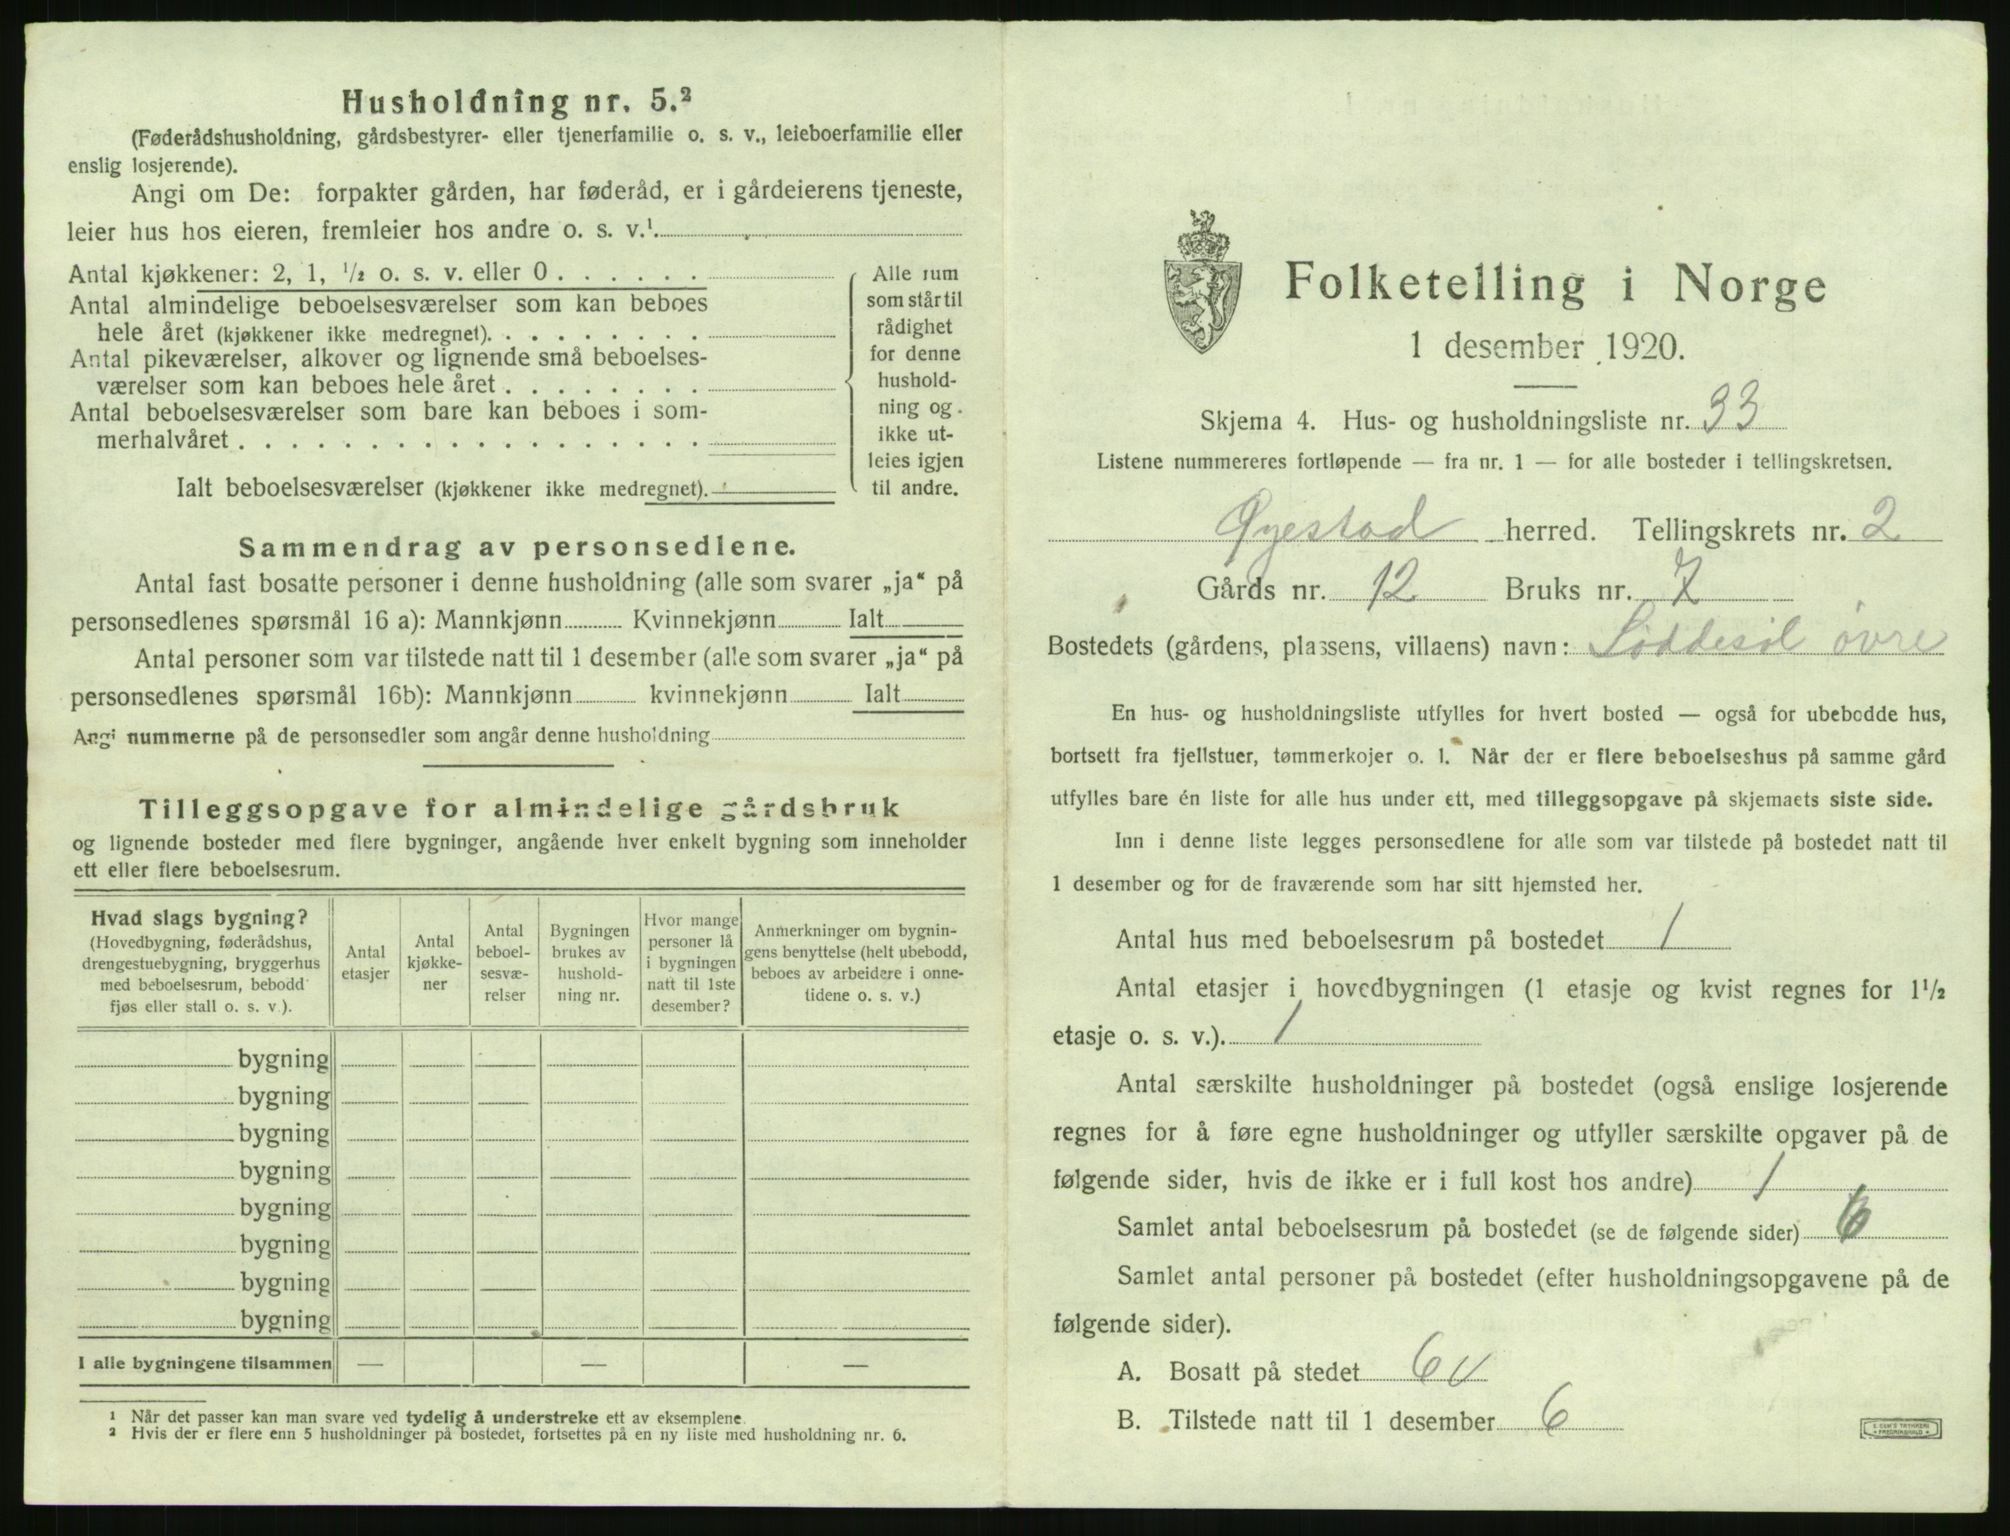 Husholdning nr. 5.²
(Føderådshusholdning, gårdsbestyrer- eller tjenerfamilie o. s. v., leieboerfamilie eller
enslig losjerende).
Angi om De: forpakter gården, har føderåd, er i gårdeierens tjeneste,
leier hus hos eieren, fremleier hos andre o. s. v.¹
Antal kjøkkener: 2, 1, ½ o. s. v. eller 0 . . . . . .
Antal almindelige beboelsesværelser som kan beboes
hele året (kjøkkener ikke medregnet). . . . . . . . .
Antal pikeværelser, alkover og lignende små beboelses-
værelser som kan beboes hele året . . . . . . . .
Antal beboelsesværelser som bare kan beboes i som-
merhalvåret . . . . . . . . . . . . . . . . . .
Ialt beboelsesværelser (kjøkkener ikke medregnet).
Alle rum
som står til
rådighet
for denne
hushold-
ning og
ikke ut-
leies igjen
til andre.
Sammendrag av personsedlene.
Antal fast bosatte personer i denne husholdning (alle som svarer „ja“ på
personsedlenes spørsmål 16 a): Mannkjønn Kvinnekjønn Ialt
Antal personer som var tilstede natt til 1 desember (alle som svarer „ja“ på
personsedlenes spørsmål 16b): Mannkjønn kvinnekjønn Ialt
Angi nummerne på de personsedler som angår denne husholdning
Tilleggsopgave for almindelige gårdsbruk
og lignende bosteder med flere bygninger, angående hver enkelt bygning som inneholder
ett eller flere beboelsesrum.
Hvad slags bygning?
(Hovedbygning, føderådshus,
drengestuebygning, bryggerhus
med beboelsesrum, bebodd
fjøs eller stall o. s. v.).
Antal
etasjer
Antal
kjøkke-
ner
Antal
beboel-
sesvæ-
relser
Bygningen
brukes av
hushold-
ning nr.
Hvor mange
personer lå
i bygningen
natt til 1ste
desember?
Anmerkninger om bygnin-
gens benyttelse (helt ubebodd,
beboes av arbeidere i onne-
tidene o. s. v.)
bygning
bygning
bygning
bygning
bygning
bygning
bygning
bygning
I alle bygningene tilsammen — — —
¹ Når det passer kan man svare ved tydelig å understreke ett av eksemplene.
² Hvis der er flere enn 5 husholdninger på bostedet, fortsettes på en ny liste med husholdning nr. 6.
Folketelling i Norge
1 desember 1920.
Skjema 4. Hus- og husholdningsliste nr. 33
Listene nummereres fortløpende — fra nr. 1 — for alle bosteder i tellingskretsen.
Øyestad herred. Tellingskrets nr. 2
Gårds nr. 12 Bruks nr. 7
Bostedets (gårdens, plassens, villaens) navn: Löddesöl övre
En hus- og husholdningsliste utfylles for hvert bosted — også for ubebodde hus,
bortsett fra fjellstuer, tømmerkojer o. l. Når der er flere beboelseshus på samme gård
utfylles bare én liste for alle hus under ett, med tilleggsopgave på skjemaets siste side.
Inn i denne liste legges personsedlene for alle som var tilstede på bostedet natt til
1 desember og for de fraværende som har sitt hjemsted her.
Antal hus med beboelsesrum på bostedet 1
Antal etasjer i hovedbygningen (1 etasje og kvist regnes for 1½
etasje o. s. v.). 1
Antal særskilte husholdninger på bostedet (også enslige losjerende
regnes for å føre egne husholdninger og utfyller særskilte opgaver på de
følgende sider, hvis de ikke er i full kost hos andre) 1
Samlet antal beboelsesrum på bostedet (se de følgende sider) 6
Samlet antal personer på bostedet (efter husholdningsopgavene på de
følgende sider).
A. Bosatt på stedet 6
B. Tilstede natt til 1 desember 6